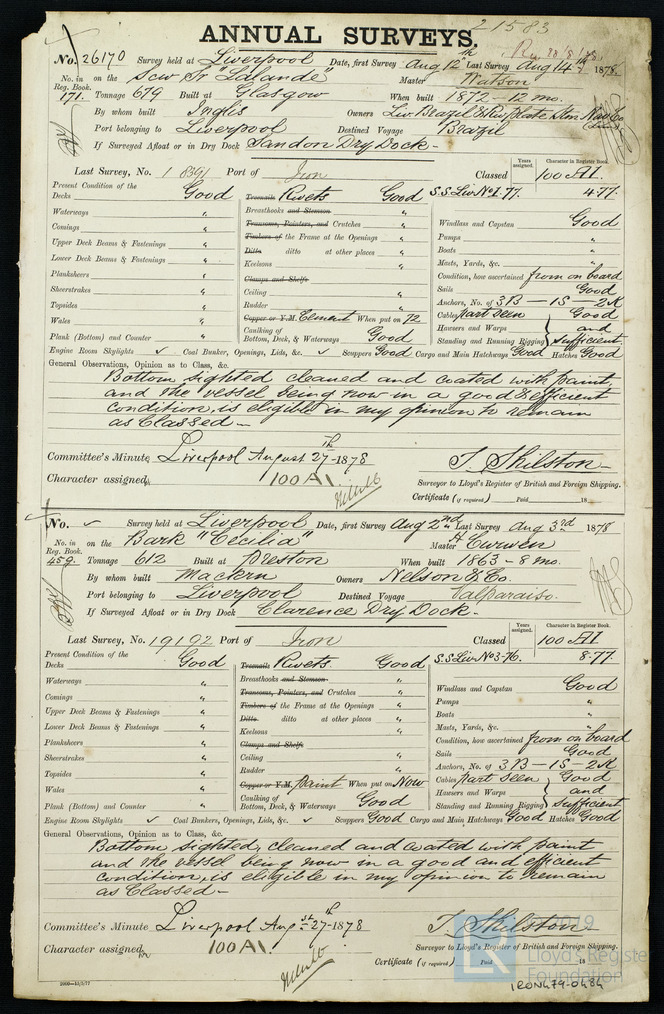 21583
ANNUAL SURVEYS.
No. 26170 Survey held at Liverpool Date, first Survey Aug 12th Last Survey Aug 14th 1878.
No. in on the Scw Sr "Lalande" Master Watson
Reg. Book.
171. Tonnage 679 Built at Glasgow When built 1872 - 12 mo.
By whom built Inglis Owners Liv. Brazil & Riv. Plate Stm. Nav. Co (Lim.)
Port belonging to Liverpool Destined Voyage Brazil
If Surveyed Afloat or in Dry Dock Sandon Dry Dock -
Years assigned. Character in Register Book.
Last Survey, No. 18391 Port of Iron Classed 100 A1
Present Condition of the
Decks Good Treenails Rivets Good S.S. Liv. No 1. 77. 4.77.
Waterways " Breasthooks and Stemson "
Comings " Transoms, Pointers, and Crutches " Windlass and Capstan Good
Upper Deck Beams & Fastenings " Timbers of the Frame at the Openings " Pumps "
Lower Deck Beams & Fastenings " Ditto ditto at other places " Boats "
Planksheers " Keelsons " Masts, Yards, &c. "
Sheerstrakes " Clamps and Shelfs Condition, how ascertained from on board
Topsides " Ceiling " Sails Good
Wales " Rudder " Anchors, No. of 3B - 1S - 2K
Plank (Bottom) and Counter " Copper or Y.M. Cement When put on 72 Cables part seen Good
Caulking of Bottom, Deck, & Waterways Good Hawsers and Warps and
Standing and Running Rigging sufficient
Engine Room Skylights ✓ Coal Bunker, Openings, Lids, &c. ✓ Scuppers Good Cargo and Main Hatchways Good Hatches Good
General Observations, Opinion as to Class, &c.
Bottom sighted cleaned and coated with paint,
and the vessel being now in a good & efficient
condition, is eligible in my opinion to remain
as Classed -
Committee's Minute Liverpool August 27th - 1878
Character assigned 100 A1. T. Skilston
Surveyor to Lloyd's Register of British and Foreign Shipping.
Certificate (if required) Paid 18
No. ✓ Survey held at Liverpool Date, first Survey Aug 2nd Last Survey Aug 3rd 1878
No. in on the Bark "Cecilia" Master H Curwen
Reg. Book.
459. Tonnage 612 Built at Preston When built 1863 - 8 mo.
By whom built Mackern Owners Nelson & Co.
Port belonging to Liverpool Destined Voyage Valparaiso.
If Surveyed Afloat or in Dry Dock Clarence Dry Dock -
Years assigned. Character in Register Book.
Last Survey, No. 19192 Port of Iron Classed 100 A1
Present Condition of the
Decks Good Treenails Rivets Good S.S. Liv. No 3-76. 8.77.
Waterways " Breasthooks and Stemson "
Comings " Transoms, Pointers, and Crutches " Windlass and Capstan Good
Upper Deck Beams & Fastenings " Timbers of the Frame at the Openings " Pumps "
Lower Deck Beams & Fastenings " Ditto ditto at other places " Boats "
Planksheers " Keelsons " Masts, Yards, &c. "
Sheerstrakes " Clamps and Shelfs Condition, how ascertained from on board
Topsides " Ceiling " Sails Good
Wales " Rudder " Anchors, No. of 3B - 1S - 2K
Plank (Bottom) and Counter " Copper or Y.M. Paint When put on Now Cables part seen Good
Caulking of Bottom, Deck, & Waterways Good Hawsers and Warps and
Standing and Running Rigging sufficient
Engine Room Skylights ✓ Coal Bunkers, Openings, Lids, &c. ✓ Scuppers Good Cargo and Main Hatchways Good Hatches Good
General Observations, Opinion as to Class, &c.
Bottom sighted, cleaned and coated with paint
and the vessel being now in a good and efficient
condition, is eligible in my opinion to remain
as Classed -
Committee's Minute Liverpool Augst 27th - 1878
Character assigned 100 A1. T. Skilston
Surveyor to Lloyd's Register of British and Foreign Shipping.
Certificate (if required) Paid 18
Lloyd's Register
Foundation
IRON479-0484